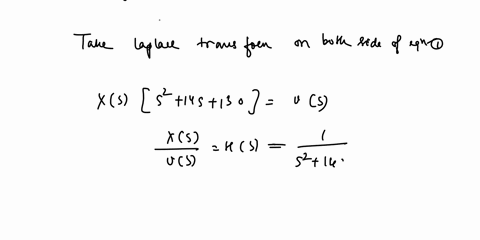 Take laplace transfoem on both side of eqn ①
X(s) [s²+14s+130] = U(s)
X(s)/U(s) = H(s) = 1/s²+14